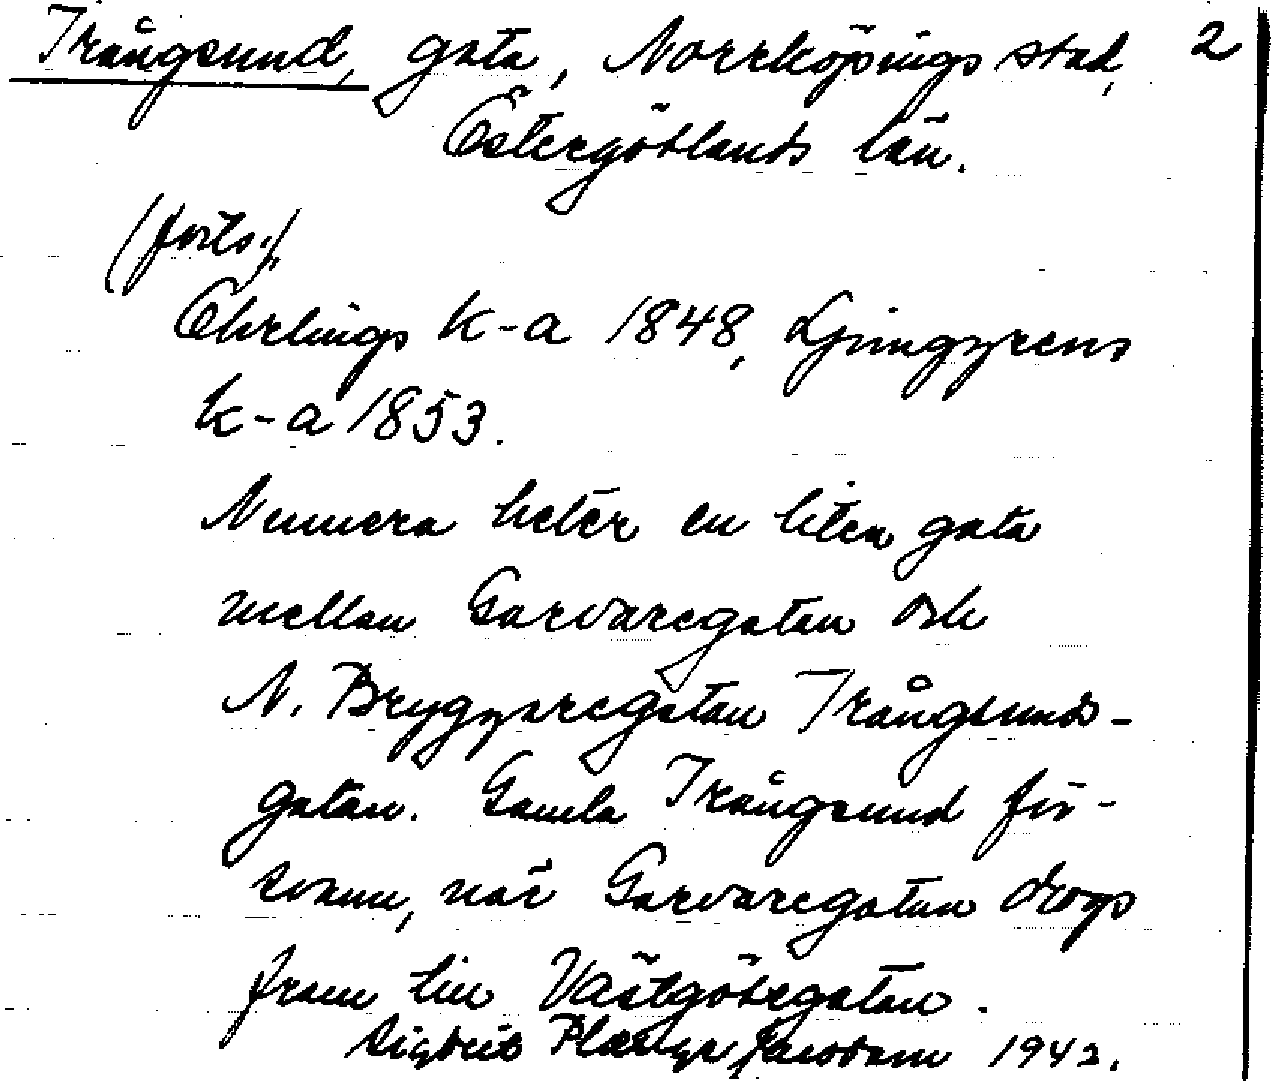 Trångsund, gata, Norrköpings stad, 2
Östergötlands län.
(forts.),
Ehrlings k-a 1848, Ljunggrens
k-a 1853.
Numera heter en liten gata
mellan Garvaregatan och
N. Bryggaregatan Trångsunds-
gatan. Gamla Trångsund för-
svann, när Garvaregatan drogs
fram till Västgötegatan.
1942.